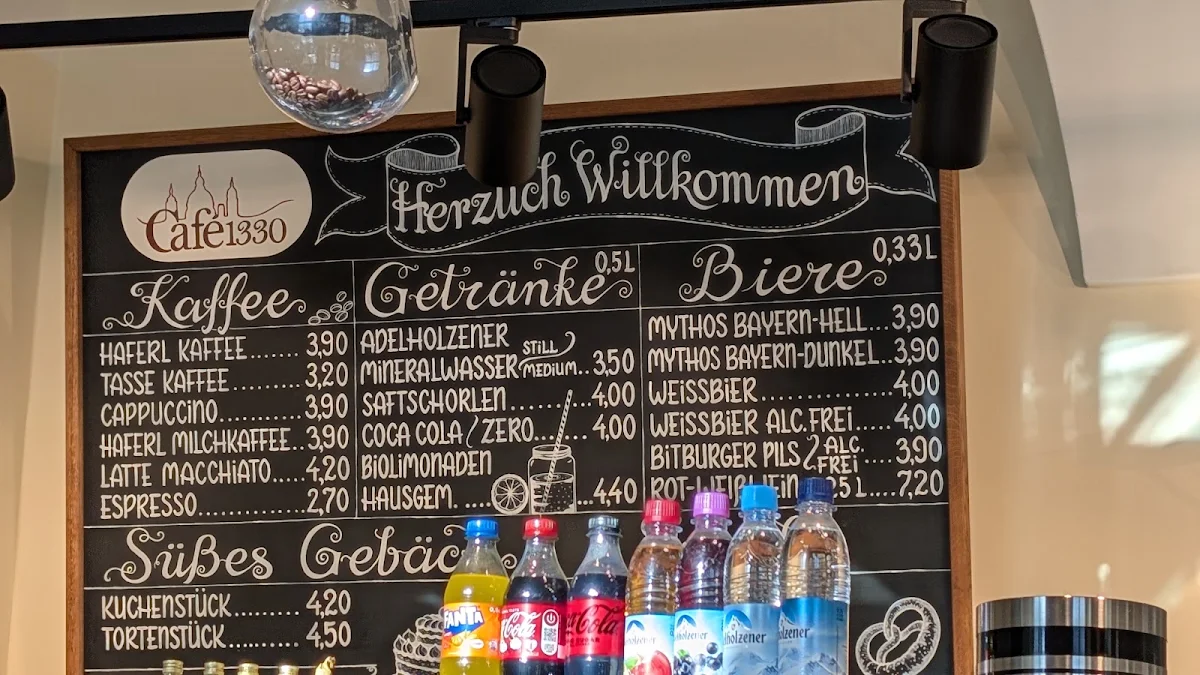 Café 1330
Herzlich Willkommen
Kaffee
HAFERL KAFFEE....... 3,90
TASSE KAFFEE......... 3,20
CAPPUCCINO........... 3,90
HAFERL MILCHKAFFEE.. 3,90
LATTE MACCHIATO..... 4,20
ESPRESSO............. 2,70
Getränke 0,5L
ADELHOLZENER
MINERALWASSER STILL MEDIUM.. 3,50
SAFTSCHORLEN.......... 4,00
COCA COLA / ZERO...... 4,00
BIOLIMONADEN
HAUSGEM. ... 4,40
Biere 0,33L
MYTHOS BAYERN-HELL... 3,90
MYTHOS BAYERN-DUNKEL.. 3,90
WEISSBIER............. 4,00
WEISSBIER ALC.FREI..... 4,00
BITBURGER PILS / ALC. FREI.... 3,90
ROT-WEIßWEIN 25L.... 7,20
Süßes Gebäc
KUCHENSTÜCK......... 4,20
TORTENSTÜCK......... 4,50
FANTA
Coca-Cola
Coca-Cola
lholzener
lholzener
lholzener
lholzener